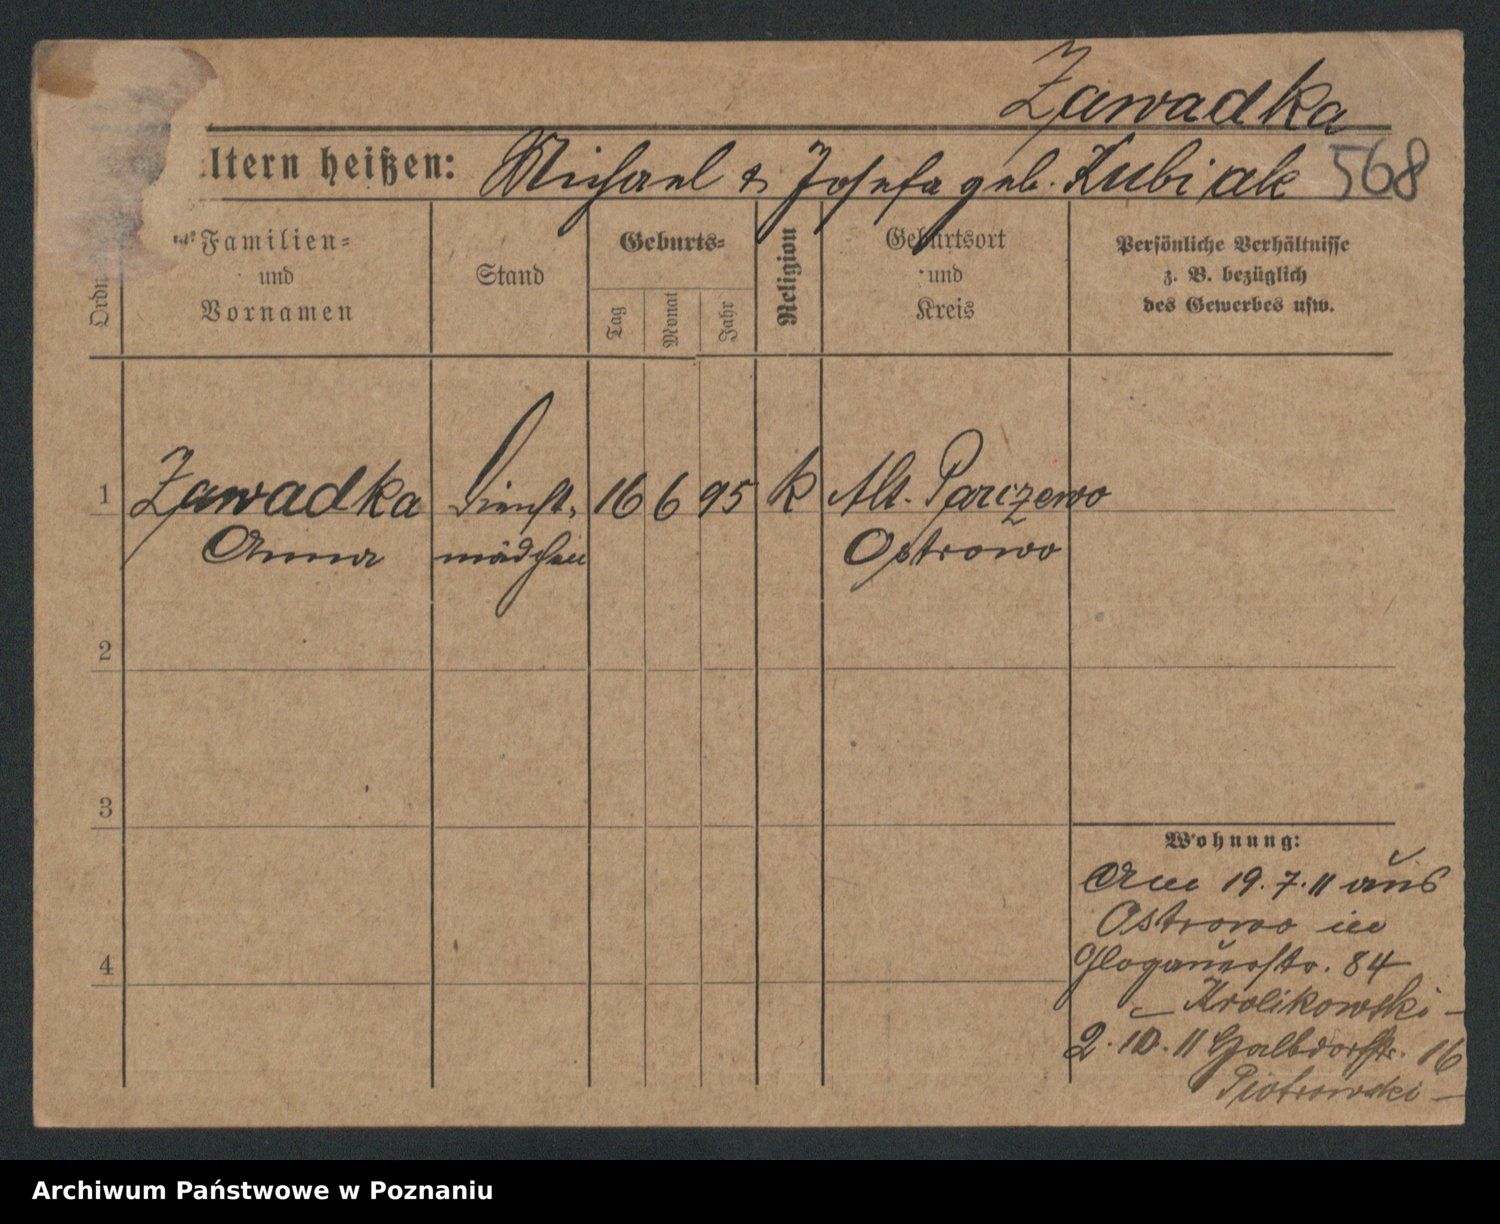 Zawadka
ltern heißen: Michael & Josefa geb. Kubiak 568
Ordn
Familien=
und
Vornamen
Stand
Geburts=
Tag
Monat
Jahr
Religion
Geburtsort
und
Kreis
Persönliche Verhältnisse
z. B. bezüglich
des Gewerbes usw.
1 Zawadka Dienst- 16 6 95 k Alt. Parczewo
Anna mädchen Ostrowo
2
3
4
Wohnung:
Am 19. 7. 11 aus
Ostrowo in
Glogauerstr. 84
– Krolikowski –
2. 10. 11 Halbdorfstr. 16
Piotrowski –
Archiwum Państwowe w Poznaniu